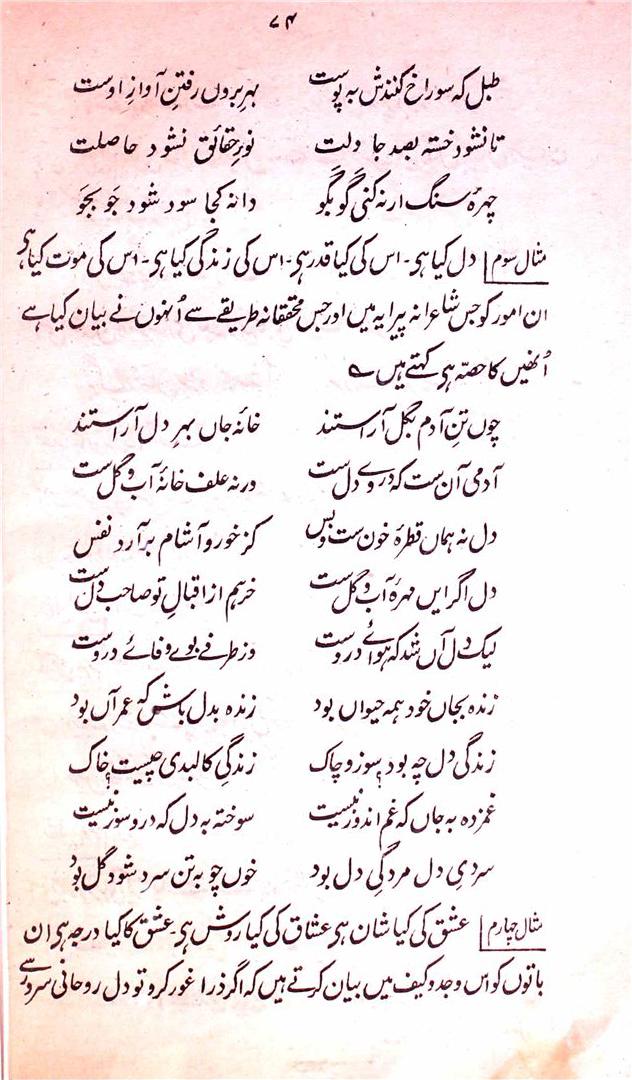 ۷۴
طبل که سوراخ کنندش به پوست بهرِ بروں رفتنِ آوازِ اوست
تا نشود خسته بصد جا دلت نورِ حقائق نشود حاصلت
چهرهٔ سنگ ار نه کنی گو بگو دانه کجا سود شود جَو بجَو
مثال سوم دل کیا ہی۔ اس کی کیا قدر ہی۔ اس کی زندگی کیا ہی۔ اس کی موت کیا ہی
ان امور کو جس شاعرانہ پیرایہ میں اور جس محققانہ طریقے سے اُنہوں نے بیان کیا ہے
اُنھیں کا حصّہ ہی کہتے ہیں ؎
چوں تنِ آدم بگل آراستند خانهٔ جاں بهرِ دل آراستند
آدمی آن ست که در وے دل ست ورنه علف خانهٔ آب و گل ست
دل نه هماں قطرهٔ خون ست و بس کز خور و آشام برآرد نفس
دل اگر ایں مهرهٔ آب و گل ست خر هم از اقبالِ تو صاحب دل ست
لیک دل آں شد که هوائے دروست وز طرفے بوے وفائے دروست
زنده بجاں خود همه حیواں بود زنده بدل باش که عمر آں بود
زندگیِ دل چه بود؟ سوز و چاک زندگیِ کالبدی چیست؟ خاک
غمزده به جاں که غم اندوز نیست سوخته به دل که درو سوز نیست
سردیِ دل مردگیِ دل بود خوں چو به تن سرد شود گل بود
مثال چہارم عشق کی کیا شان ہی عشاق کی کیا روش ہی۔ عشق کا کیا درجہ ہی ان
باتوں کو اس وجد و کیف میں بیان کرتے ہیں کہ اگر ذرا غور کرو تو دل روحانی سرور سے